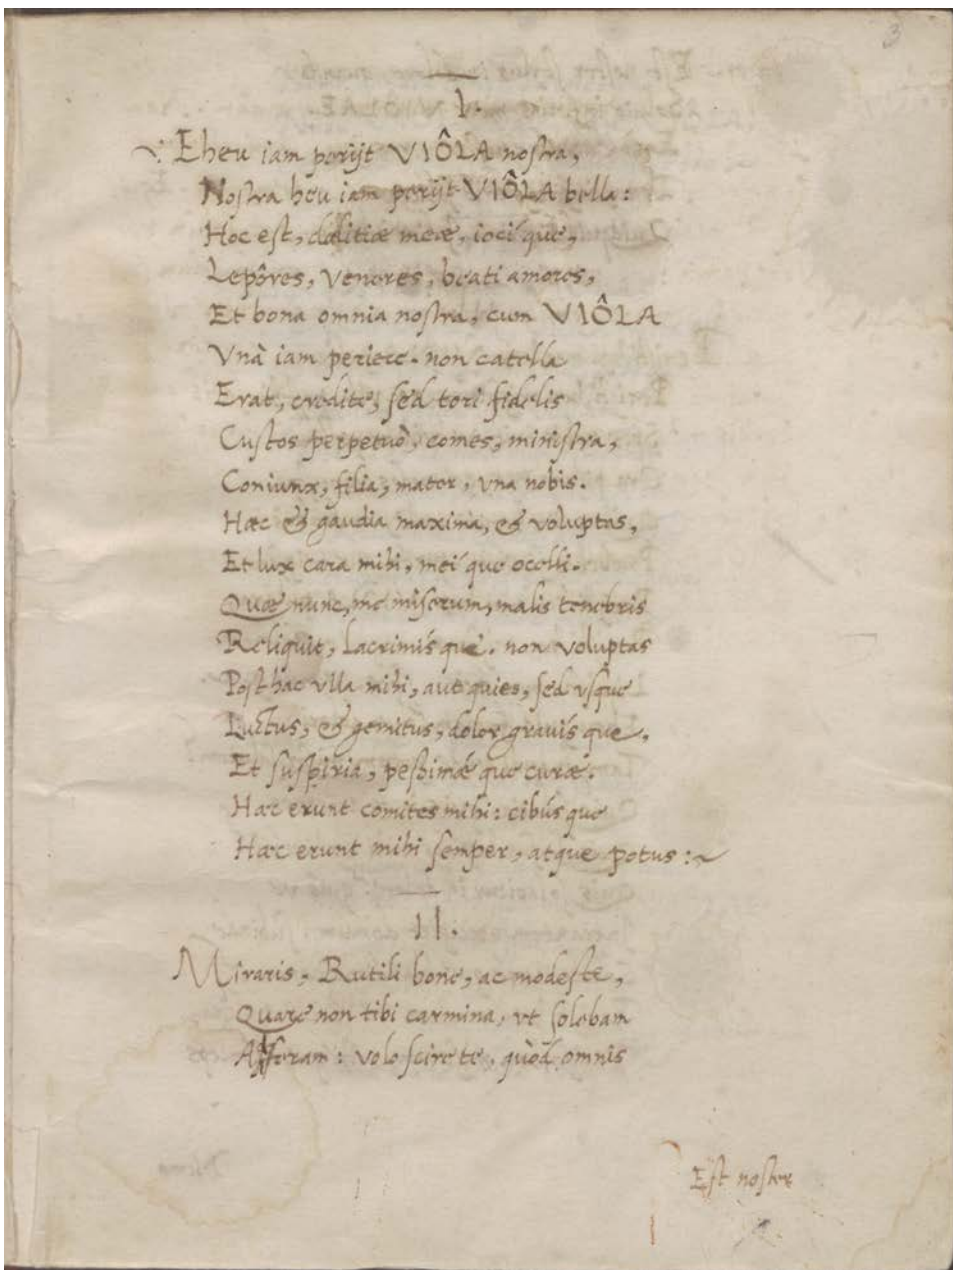 3
I.
Eheu iam perijt VIÔLA nostra,
Nostra heu iam perijt VIÔLA bella:
Hoc est, delitiæ meæ, iocíque,
Lepôres, Veneres, beati amores,
Et bona omnia nostra, cum VIÔLA
Vnà iam periere. non catella
Erat, credite, sed tori fidelis
Custos perpetuò, comes, ministra,
Coniunx, filia, mater, vna nobis.
Hæc & gaudia maxima, & voluptas,
Et lux cara mihi, meíque ocelli.
Quæ nunc, me miserum, malis tenebris
Reliquit, lacrimísque. non voluptas
Posthac vlla mihi, aut quies, sed vsque
Luctus, & gemitus, dolor grauísque,
Et suspiria, pessimǽque curæ.
Hæc erunt comites mihi: cibúsque
Hæc erunt mihi semper, atque potus:~
II.
Miraris, Rutili bone, ac modeste,
Quare non tibi carmina, vt solebam
Afferam: volo scire te, quòd omnis
Est noster